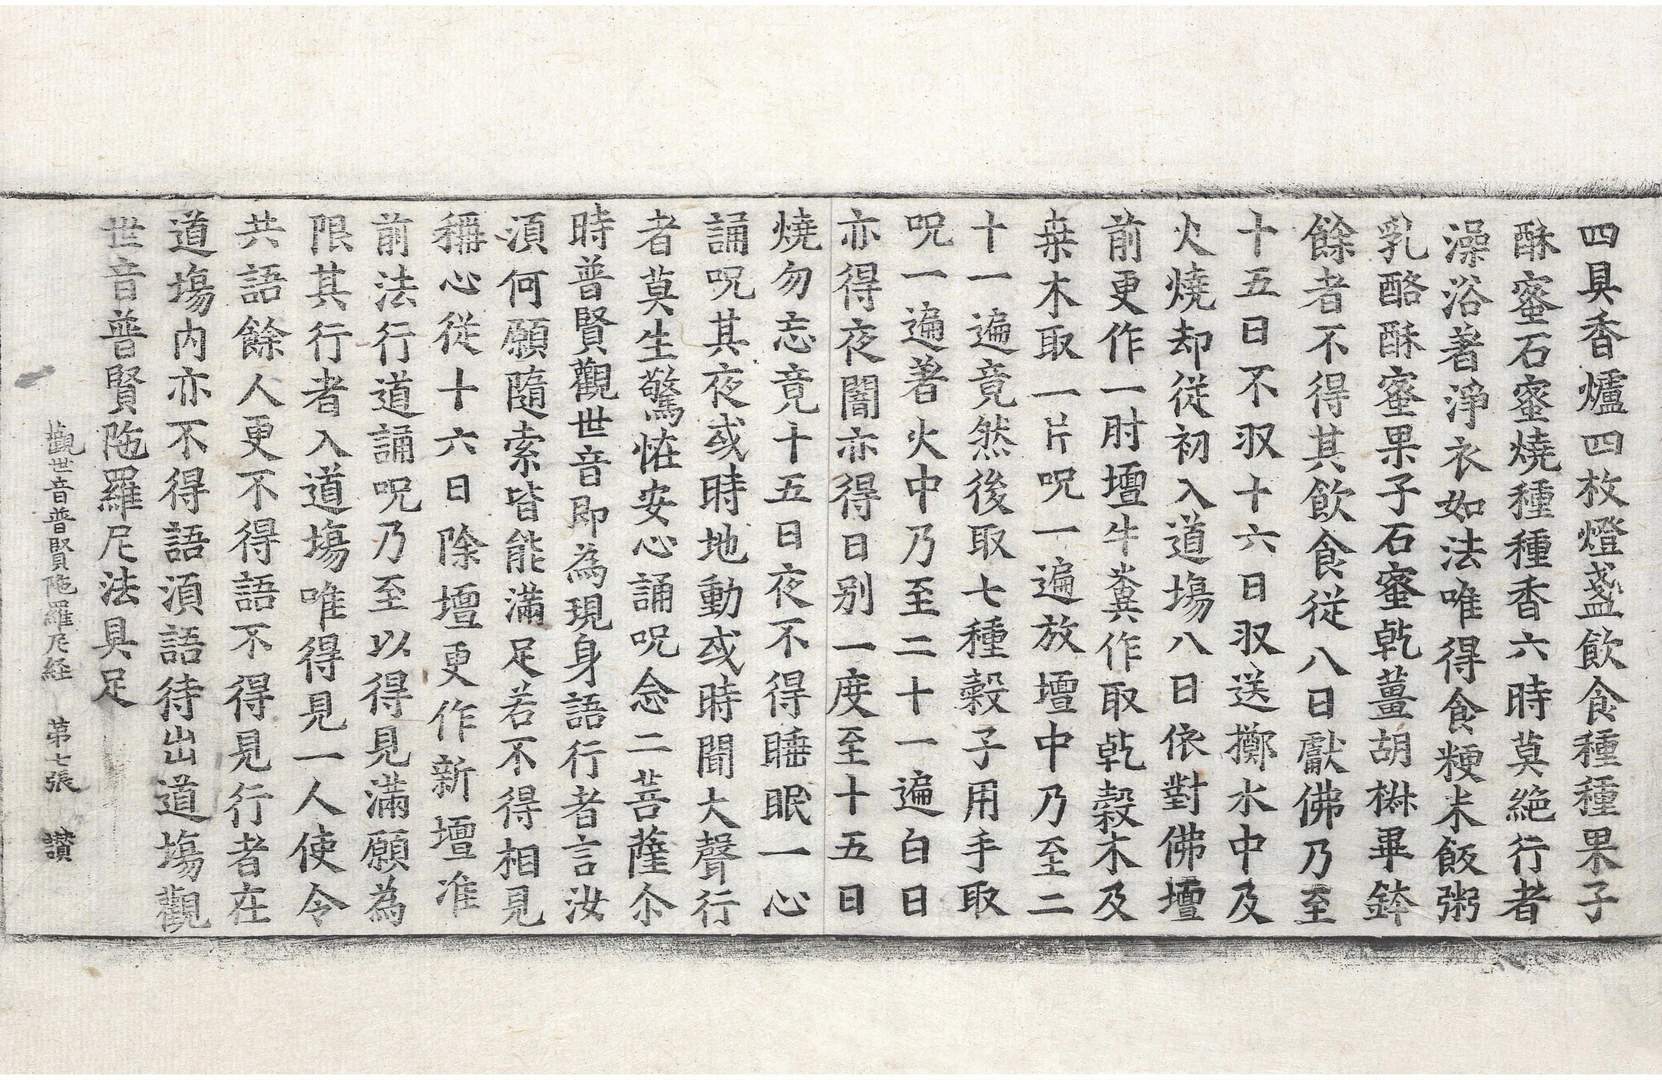 四具香爐四枚燈盞飲食種種果子
酥蜜石蜜燒種種香六時莫絶行者
澡浴著淨衣如法唯得食粳米飯粥
乳酪酥蜜果子石蜜乾薑胡椒畢鉢
餘者不得其飲食從八日獻佛乃至
十五日不収十六日収送擲水中及
火燒却從初入道塲八日依對佛壇
前更作一肘壇牛糞作取乾穀木及
桒木取一片呪一遍放壇中乃至二
十一遍竟然後取七種穀子用手取
呪一遍著火中乃至二十一遍白日
亦得夜闇亦得日别一度至十五日
燒勿忘竟十五日夜不得睡眠一心
誦呪其夜或時地動或時聞大聲行
者莫生驚恠安心誦呪念二菩薩尒
時普賢觀世音即為現身語行者言汝
湏何願隨索皆能滿足若不得相見
稱心從十六日除壇更作新壇准
前法行道誦呪乃至以得見滿願為
限其行者入道塲唯得見一人使令
共語餘人更不得語不得見行者在
道塲内亦不得語湏語待出道塲觀
世音普賢陁羅尼法具足
觀世音普賢陁羅尼経 第七張 讃